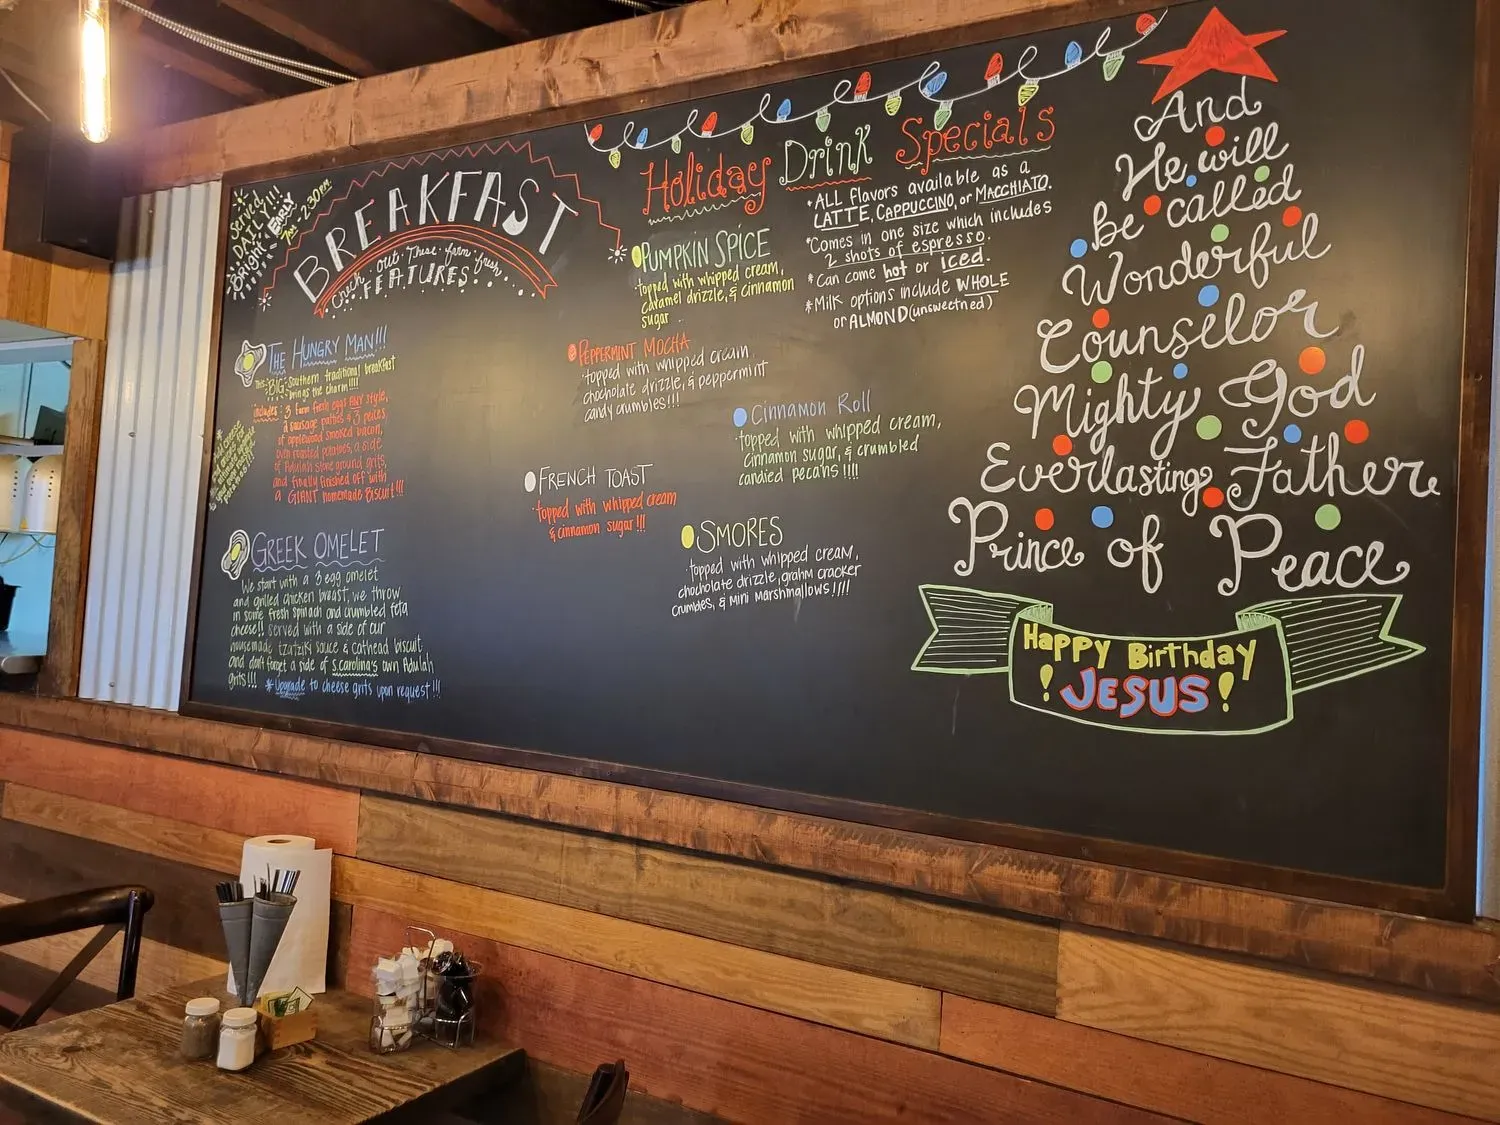 Served
DAILY!!!
Bright & EARLY
7am - 2:30pm
BREAKFAST
Check out These farm fresh
FEATURES
THE HUNGRY MAN!!!
This "BIG" Southern traditional breakfast
brings the charm!!!!
includes: 3 farm fresh eggs ANY style,
2 sausage patties & 3 peices
of applewood smoked bacon,
oven roasted potatoes, a side
of Adulah stone ground grits,
and finally finished off with
a GIANT homemade Biscuit!!!
GREEK OMELET
We start with a 3 egg omelet
and grilled chicken breast, we throw
in some fresh spinach and crumbled feta
cheese!! served with a side of our
housemade tzatziki sauce & cathead biscuit
and don't forget a side of S.carolina's own Adulah
grits!!!
*Upgrade to cheese grits upon request!!!
Holiday Drink Specials
•ALL Flavors available as a
LATTE, CAPPUCCINO, or MACCHIATO.
*Comes in one size which includes
2 shots of espresso.
*Can come hot or iced.
*Milk options include WHOLE
or ALMOND (unsweetned)
PUMPKIN SPICE
•topped with whipped cream,
caramel drizzle, & cinnamon
sugar
PEPPERMINT MOCHA
•topped with whipped cream,
chocholate drizzle, & peppermint
candy crumbles!!!
Cinnamon Roll
•topped with whipped cream,
cinnamon sugar, & crumbled
candied pecans !!!!
FRENCH TOAST
•topped with whipped cream
& cinnamon sugar!!!
SMORES
•topped with whipped cream,
chocholate drizzle, grahm cracker
crumbles, & mini marshmallows!!!!
And
He will
be called
Wonderful
Counselor
Mighty God
Everlasting Father
Prince of Peace
Happy Birthday
!JESUS!